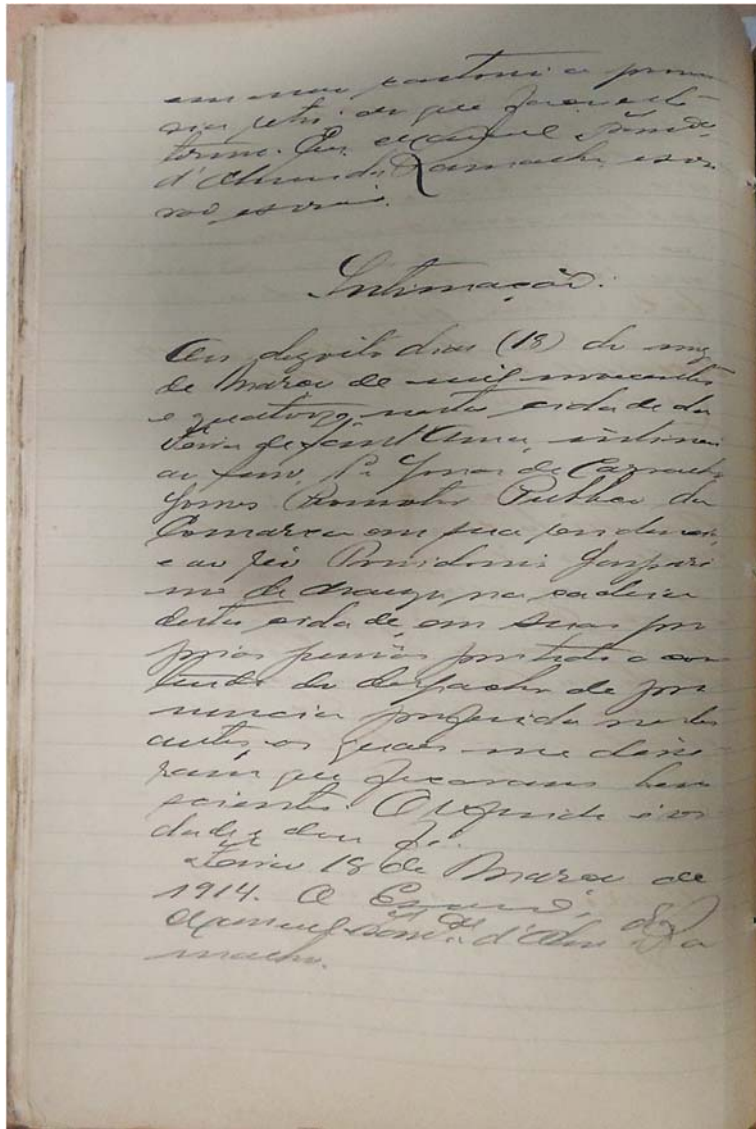 em meu cartorio a pronun
cia retro do que faço este
termo. Eu, Manuel
d'Almeida Ramacho, escri
vão, escrevi.
Intimação.
Aos dezoito dias (18) do mez
de Março de mil novecentos
e quatorze, nesta cidade da
Feira de Sant'Anna, intimei
ao Exmo. Dr. Jonas de Carvalho
Gomes Promotor Publico da
Comarca em sua residencia,
e ao réo Possidonio Gonçalo
de Araujo na cadeia
desta cidade, em suas pro
prias pessôas por todo o con
teudo do despacho de pro
nuncia proferido nestes
autos, os quaes me disse
ram que ficaram bem
scientes. O referido é ver
dade e dou fé.
Feira 18 de Março de
1914. O Escrivão,
Manuel d'Alm. Ra
macho.